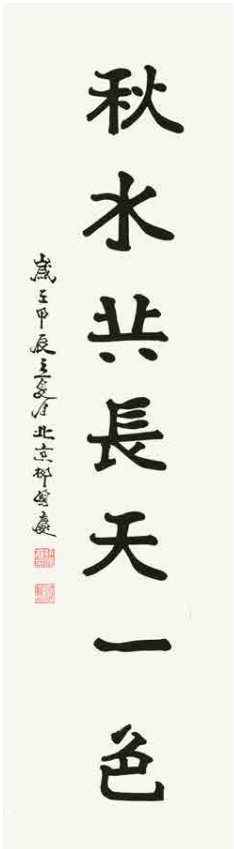 秋水共長天一色
歲在甲辰立夏於北京